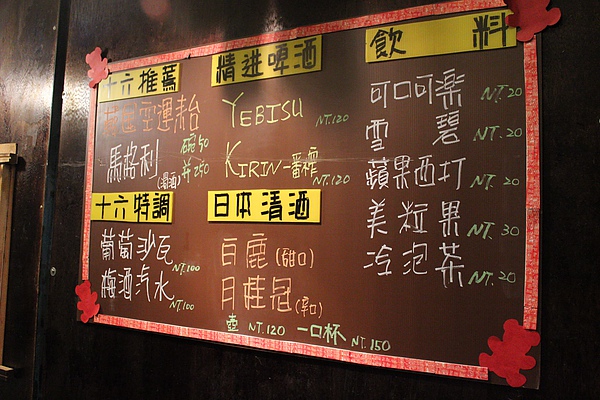 十六推薦
馬格利
(濁酒)
碗50
瓶250
十六特調
葡萄沙瓦 NT.100
梅酒汽水 NT.100
精进啤酒
YEBISU NT.120
KIRIN一番搾 NT.120
日本清酒
白鹿(甜口)
月桂冠(辛口)
壺 NT.120 一口杯 NT.150
飲料
可口可楽 NT.20
雪碧 NT.20
蘋果西打 NT.20
美粒果 NT.30
冷泡茶 NT.20